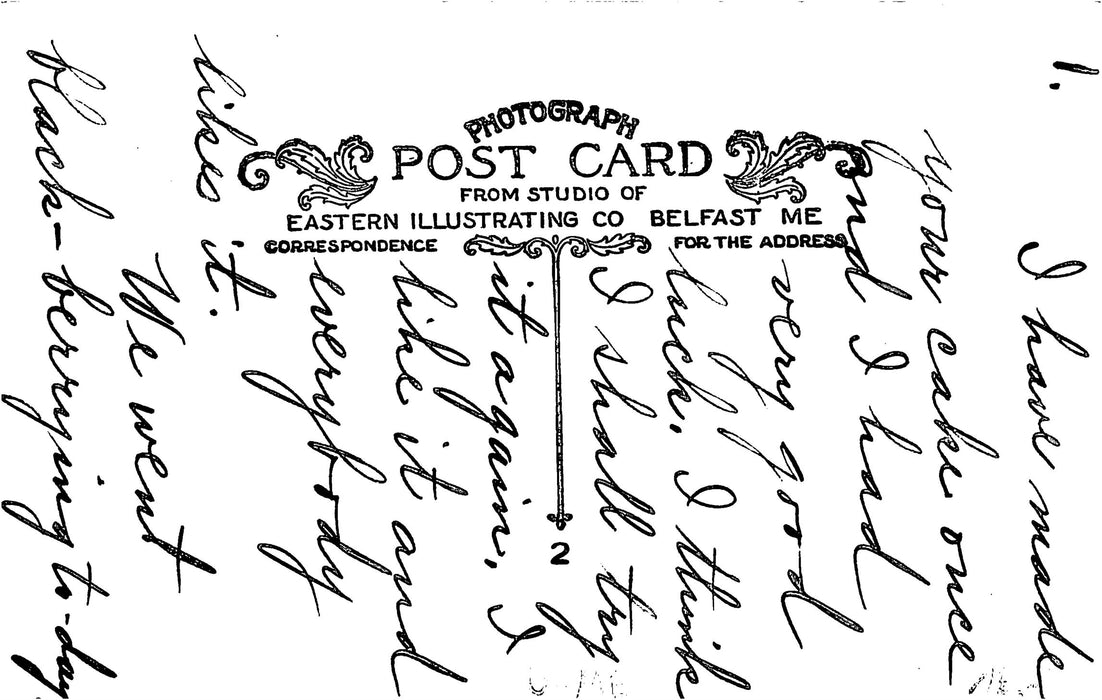 1.
I have made
your cake once
and I had
very good
luck. I think
I shall try
it again, I
like it and
everybody
likes it.
We went
black-berrying to-day
PHOTOGRAPH
POST CARD
FROM STUDIO OF
EASTERN ILLUSTRATING CO BELFAST ME
CORRESPONDENCE
FOR THE ADDRESS
2